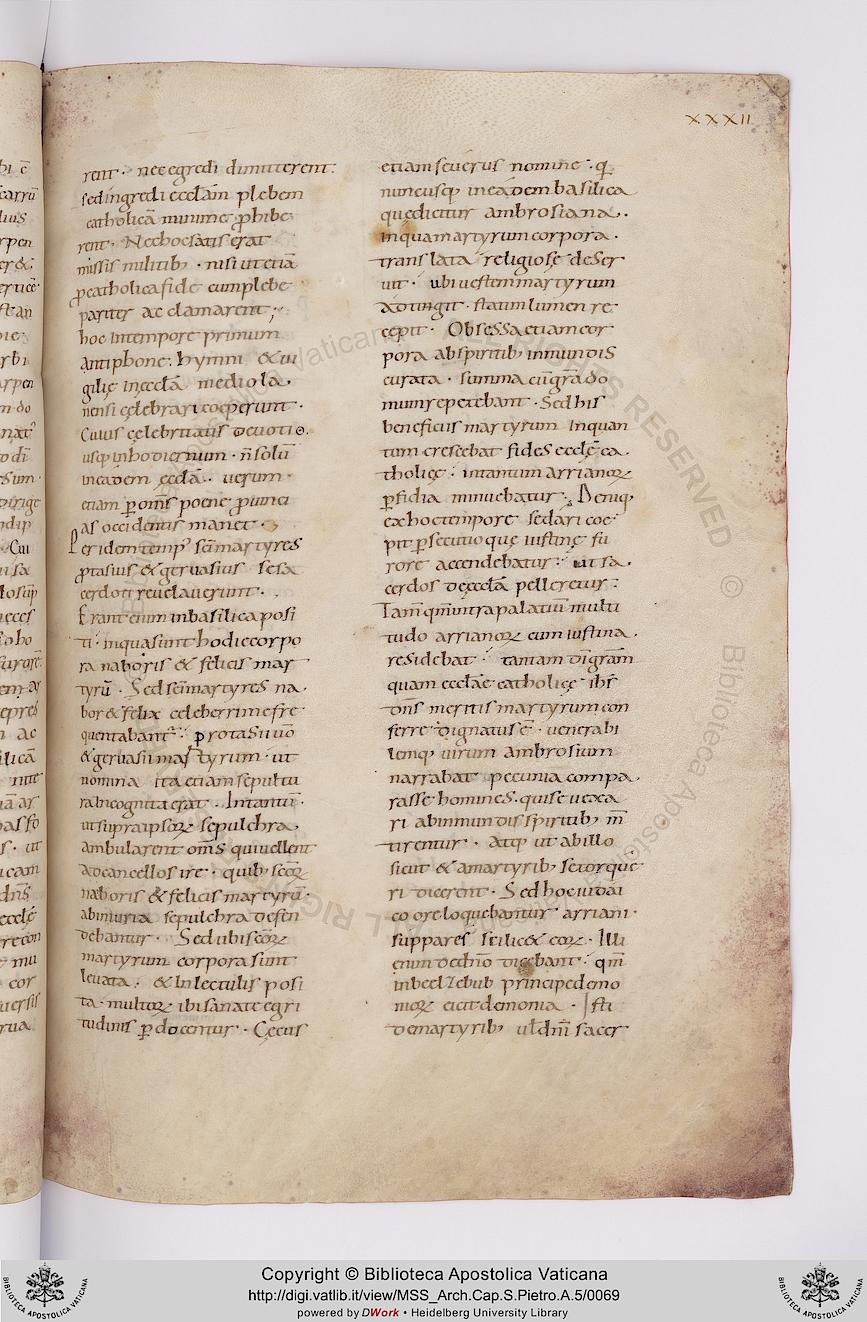 XXXII
rent · nec egredi dimitterent:
sed ingredi ecclam plebem
catholicā minime ꝓhibe
rent · Nec hoc satis erat
missis militibꝫ · nisi ut etiā
ꝓ catholica fide cum plebe
pariter ac clamarent ;
hoc intempore primum
antiphone · hymni & ui
gilię inecclā mediola ·
nensi cęlebrari coeperunt ·
Cuius cęlebritatis deuotio ·
usqꝫ inhodiernum · ñ solū
ineadem ecclā · uerum ·
etiam ꝑ oms poene ꝓuinci
as occidentis manet ·
Per idem tempꝰ sci martyres
ꝓtasius & geruasius se sa
cerdoti reuelauerunt ·
Erant enim inbasilica posi
ti · inqua sunt hodie corpo
ra naboris & felicis mar
tyrū · Sed sci martyres na ·
bor & felix celeberrime fre
quentabant · protasii uō
& geruasii martyrum · ut
nomina ita etiam sepultu
ra incognita erat · Intantū ·
ut supra ipsoꝝ sepulchra ·
ambularent oms qui uellent
ad cancellos ire · quibꝫ scoꝝ
naboris & felicis martyrū ·
abiniuria sepulchra defen
debantur · Sed ubi scoꝝ
martyrum corpora sunt
leuata · & In lectulis posi
ta · multoꝝ ibi sanate egri
tudinis ꝑdocentur · Cęcus
etiam seuerus nomine · q
nunc usqꝫ ineadem basilica
que dicitur ambrosiana ·
inqua martyrum corpora ·
translata religiose deser
uit · ubi uestem martyrum
adtingit · statim lumen re
cepit · Obsessa etiam cor
pora abspiritibꝫ inmundis
curata · summa cū gra do
mum repetebant · Sed his
beneficiis martyrum Inquan
tum crescebat fides ecclę ca ·
tholicę · intantum arrianoꝝ
ꝑfidia minuebatur · Deniqꝫ
ex hoc tempore sedari coe
pit ꝑsecutio que iustinę fu
rore accendebatur · ut sa ·
cerdos de ecclā pelleretur :
Tam qm intra palatiū multi
tudo arrianoꝝ cum iustina ·
residebat · tantam di gram
quam ecclae catholicę ihs
dns meritis martyrum con
ferre dignatus ē · uenerabi
lemqꝫ uirum ambrosium
narrabat pecunia compa ·
rasse homines · qui se uexa
ri abinmundis spiritibꝫ m
tirentur · atqꝫ ut abillo
sicut & amartyribꝫ se torque
ri dicerent · Sed hoc iudai
co ore loquebantur arriani ·
suppares scilic& eoꝝ · Illi
enim de dno dicebant · qm
inbeelzebub principe demo
nioꝝ eicit demonia · Isti
de martyribꝫ ul dni sacer
Copyright © Biblioteca Apostolica Vaticana
http://digi.vatlib.it/view/MSS_Arch.Cap.S.Pietro.A.5/0069
powered by DWork • Heidelberg University Library